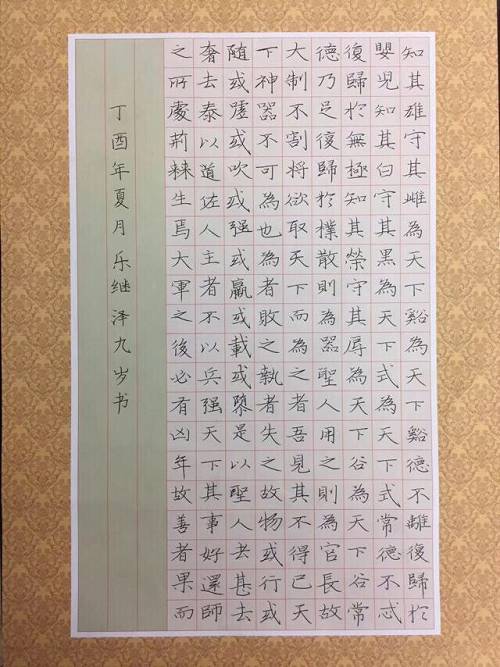 知其雄守其雌為天下谿為天下谿德不離復歸於
嬰児知其白守其黑為天下式為天下式常德不忒
復歸於無極知其榮守其辱為天下谷為天下谷常
德乃足復歸於樸散則為器聖人用之則為官長故
大制不割将欲取天下而為之者吾見其不得已天
下神器不可為也為者敗之執者失之故物或行或
随或噓或吹或强或羸或載或隳是以聖人去甚去
奢去泰以道佐人主者不以兵强天下其事好還師
之所處荊棘生焉大軍之後必有凶年故善者果而
丁酉年夏月乐继泽九岁书